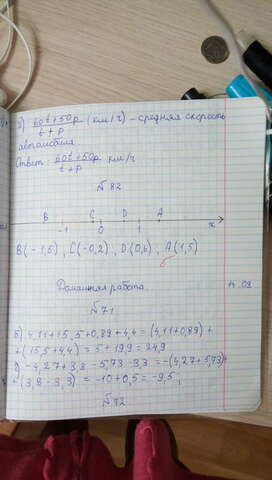 в) 60t+50p / t+p (км/ч) – средняя скорость
автомобиля.
Ответ: 60t+50p / t+p км/ч
№ 82
B C D A
-1 0 1 x
B(-1,5), C(-0,2), D(0,6), A(1,5)
Домашняя работа.
№ 71
4,11+15,5+0,89+4,4=(4,11+0,89)+
+(15,5+4,4)=5+19,9=24,9
-4,27+3,8-5,73-3,3=-(4,27+5,73)+
+(3,8-3,3)=-10+0,5=-9,5;
№ 72